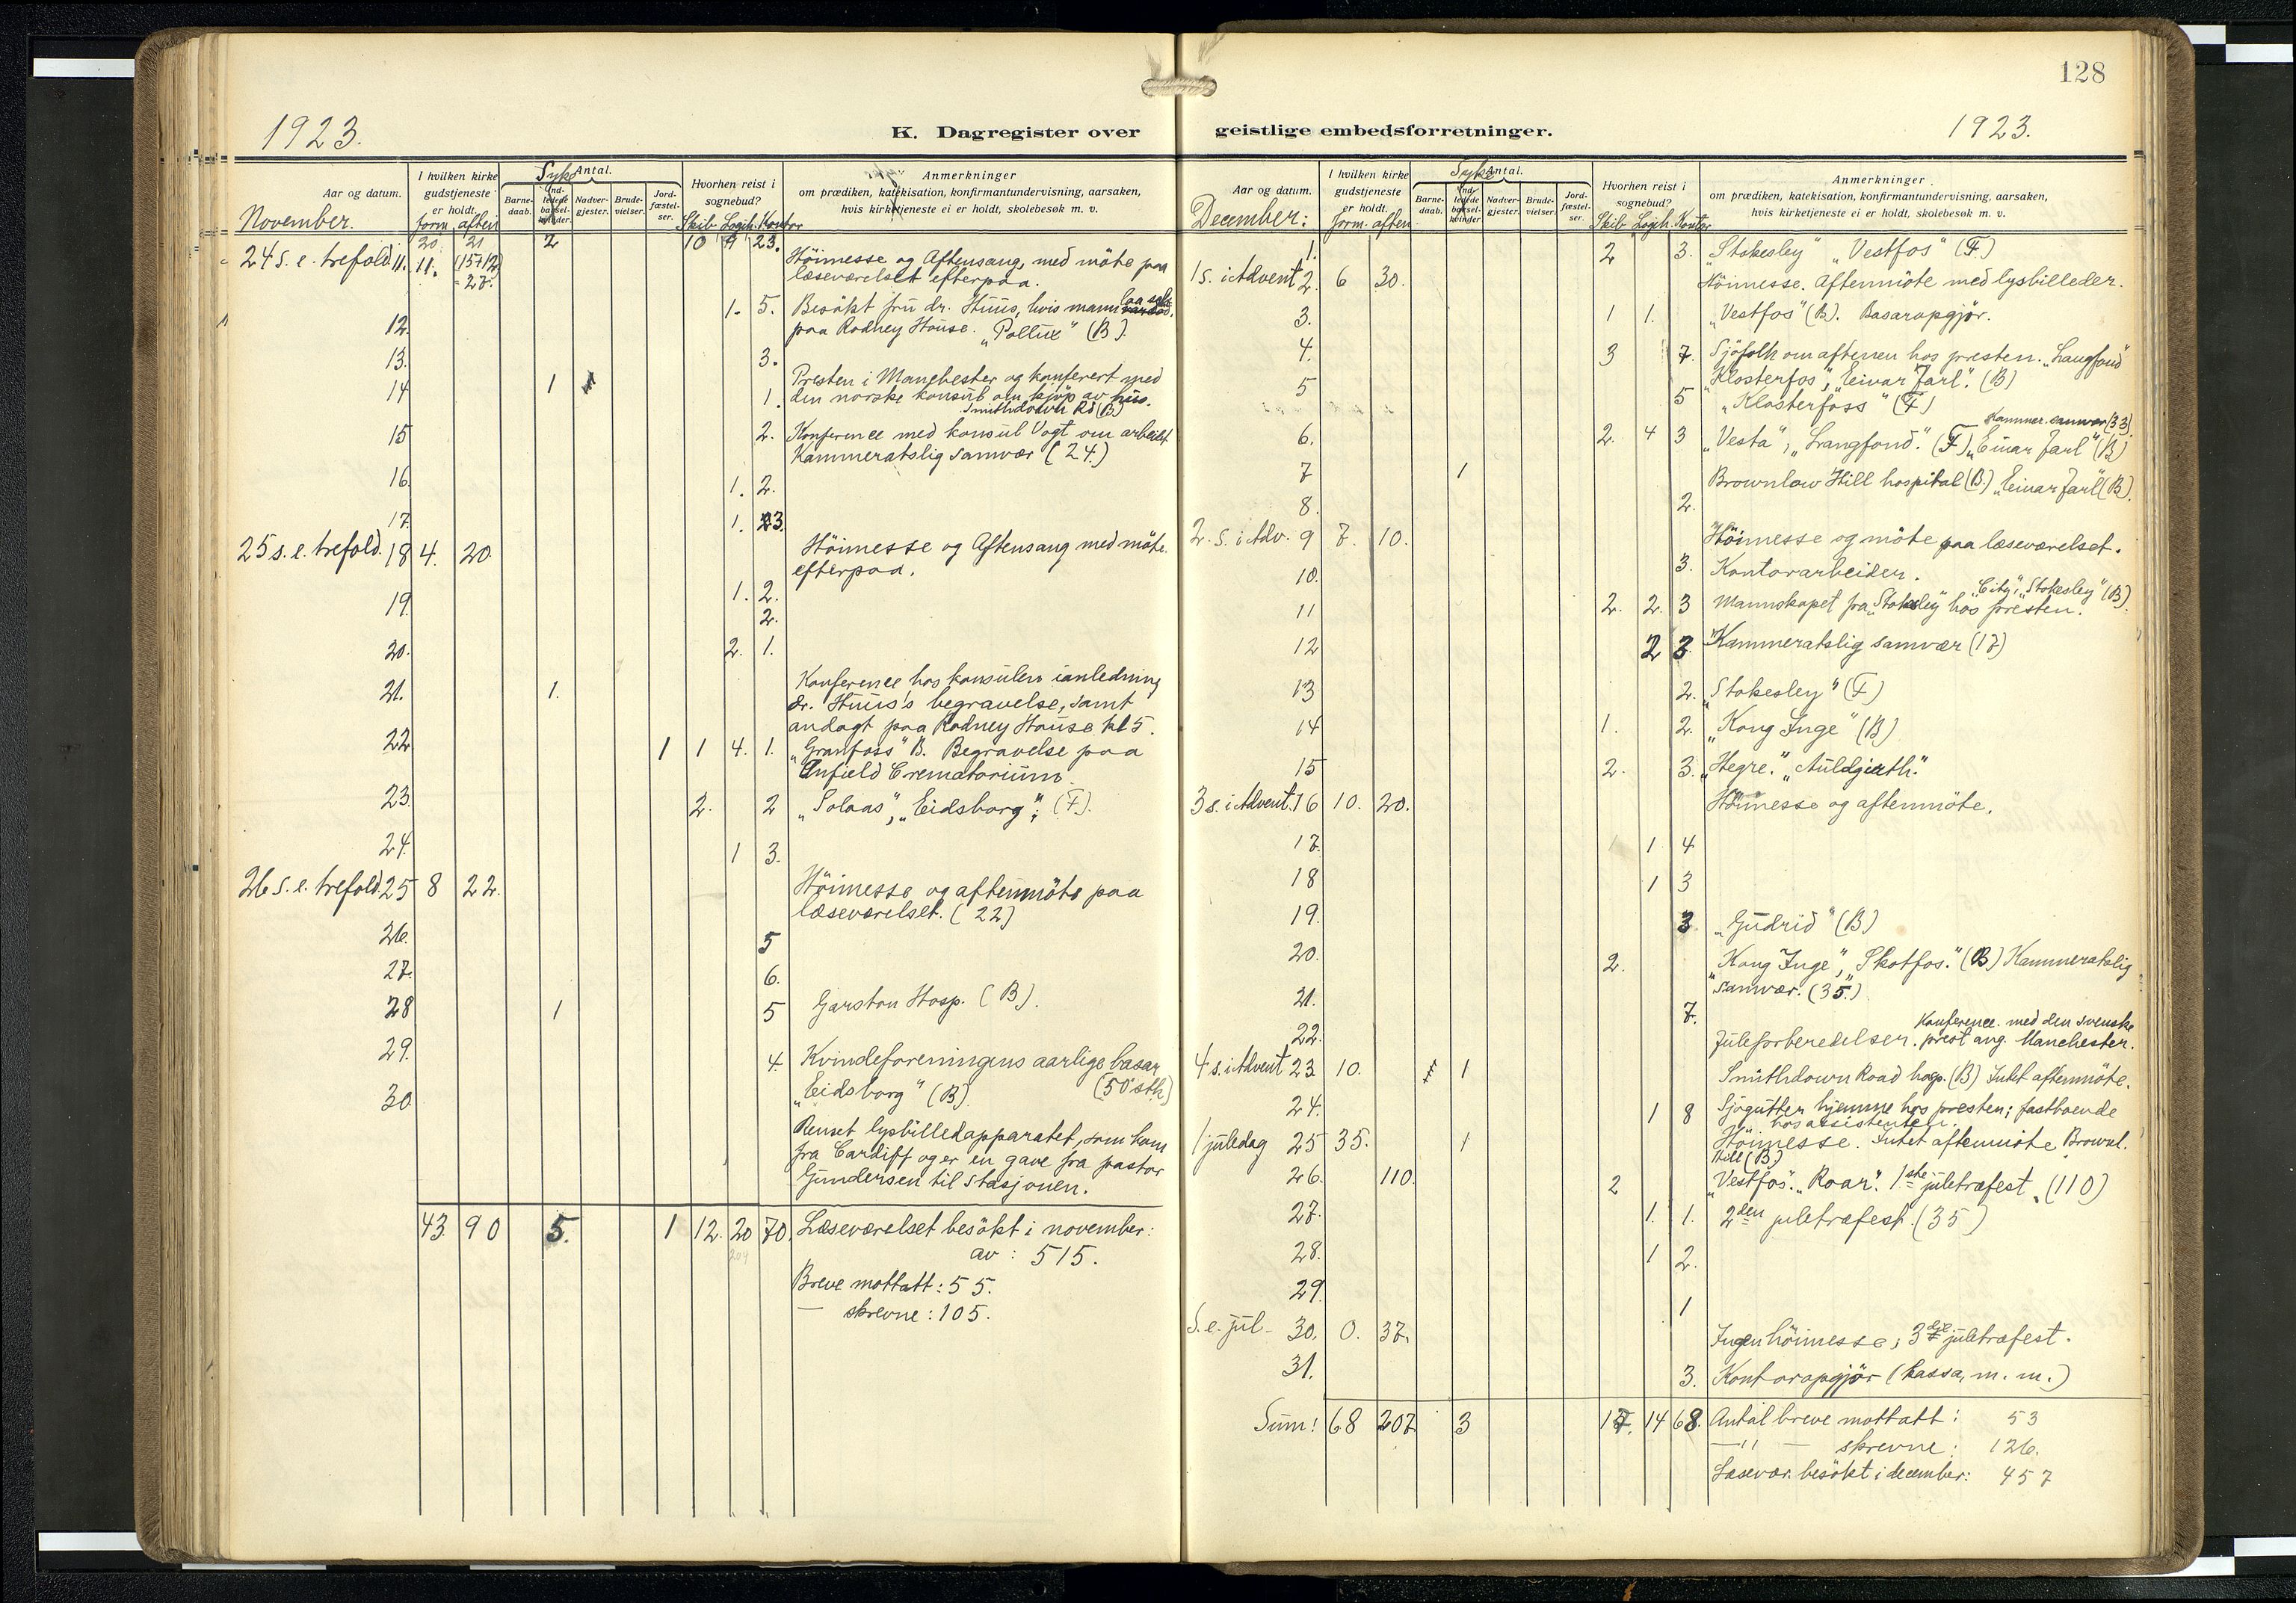 128
1923.
K. Dagregister over
geistlige embedsforretninger.
1923.
Aar og datum.
I hvilken kirke gudstjeneste er holdt.
Syke
Antal.
Barne-daab.
Ind-ledede barsel-kvinder.
Nadver-gjester.
Brude-vielser.
Jord-fæstel-ser.
Hvorhen reist i sognebud?
Anmerkninger
om prædiken, katekisation, konfirmantundervisning, aarsaken,
hvis kirketjeneste ei er holdt, skolebesøk m. v.
November. form. aften Skib Logih. Kontor
20 21 2 10 9 23.
24 s. e. trefold. 11. 11. (15+12) Höimesse og Aftensang, med möte paa
= 27. læseværelset efterpaa.
12. 1. 5. Besökt fru dr. Huus, hvis mann laa syk
paa Rodney House. "Pollux" (B).
13. 3.
14 1 1. Presten i Manchester og konferert med
den norske konsul om kjöp av hus.
Smithdown Rd (B)
15 2. Konference med konsul Vogt om arbeidet
Kammeratslig samvær (24.)
16. 1. 2.
17. 1. 3.
25 s. e. trefold. 18 4. 20. Höimesse og Aftensang med möte
efterpaa.
19. 1. 2.
2.
20. 2. 1.
21. 1. Konference hos konsulen i anledning
dr. Huus's begravelse, samt
andagt paa Rodney House kl 5.
22 1 1 4. 1. "Granfoss" B. Begravelse paa
Anfield Crematorium.
23. 2. 2 "Solaas", "Eidsborg", (F).
24. 1 3.
26 s. e. trefold. 25 8 22. Höimesse og aftenmöte paa
læseværelset. (22)
26. 5
27. 6.
28 1 5 Garston Hosp. (B).
29. 4. Kvindeforeningens aarlige basar
(50 stk)
30 "Eidsborg" (B)
Renset lysbilledapparatet, som kom
fra Cardiff og er en gave fra pastor
Gundersen til stasjonen.
43. 90 5. 1 12. 20 70. Læseværelset besökt i november:
av: 515.
Breve mottatt: 55.
— skrevne: 105.
Aar og datum.
I hvilken kirke gudstjeneste er holdt.
Syke
Antal.
Barne-daab.
Ind-ledede barsel-kvinder.
Nadver-gjester.
Brude-vielser.
Jord-fæstel-ser.
Hvorhen reist i sognebud?
Anmerkninger
om prædiken, katekisation, konfirmantundervisning, aarsaken,
hvis kirketjeneste ei er holdt, skolebesøk m. v.
December: form. aften Skib Logih. Kontor
1. 2 3. "Stokesley" "Vestfos" (F)
1 s. i Advent 2. 6 30. Höimesse. Aftenmöte med lysbilleder.
3. 1 1. "Vestfos" (B). Basaropgjör.
4. 3 7. Sjöfolk om aftenen hos presten. "Langfond"
"Klosterfos", "Einar Jarl". (B)
5 5 "Klosterfoss" (F)
Kammer. samvær (33)
6. 2. 4 3 "Vesta", "Langfond." (F) "Einar Jarl" (B)
7 1 Brownlow Hill hospital (B.) "Einar Jarl" (B).
8. 2.
2. s. i Adv. 9 7. 10. Höimesse og möte paa læseværelset.
10. 3. Kontorarbeider.
"City", "Stokesley" (B)
11 2. 2. 3 Mannskapet fra "Stokesley" hos presten.
12 2 3 Kammeratslig samvær (17)
13 2. "Stokesley" (F)
14 1. 2. "Kong Inge" (B)
15 2. 3. "Hegre." "Auldgirth."
3 s. i Advent. 16 10. 20. Höimesse og aftenmöte.
17. 1 4
18 1 3
19. 3 "Gudrid" (B)
20. 2. "Kong Inge", "Skotfos." (B) Kammeratslig
samvær. (35.)
21. 7.
Konference med den svenske
22. Juleforberedelser. prest ang. Manchester.
4 s. i Advent 23 10. 1 Smithdown Road hosp. (B) Intet aftenmöte.
24. 1 8 Sjögutter hjemme hos presten; fastboende
hos assistenten.
1 juledag 25 35. 1 Höimesse. Intet aftenmöte. Brownl.
Hill (B)
26. 110. 2 "Vestfos". "Roar". 1ste juletræfest. (110)
27. 1. 1. 2den juletræfest. (35)
28. 1 2.
29. 1
S. e. jul 30. 0. 37. Ingen höimesse; 3dje juletræfest.
31. 3. Kontoropgjör (kassa, m. m.)
Sum: 68 207. 3 17. 14 68. Antal breve mottatt: 53
— " — skrevne: 126.
Læsevær. besökt i december: 457